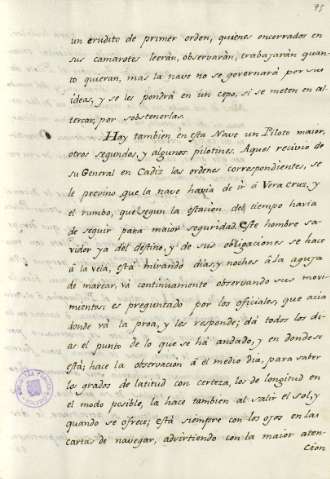 75
un erudito de primer orden, quienes encerrados en
sus camarotes leerán, observarán, trabajarán quan-
to quieran, mas la nave no se governará por sus
ideas, y se les pondrá en un cepo, si se meten en al-
tercar, por sobstenerlas.
Hay tambien en esta Nave un Piloto maior,
otros segundos, y algunos pilotines. Aquel recivio de
su General en Cadiz las ordenes correspondientes, se
le previno que la nave havia de ir á Vera Cruz, y
el rumbo, que segun la estacion del tiempo havia
de seguir para maior seguridad. Este hombre sa-
vidor ya del destino, y de sus obligaciones se hace
á la vela, está mirando dias y noches á la aguja
de marear, vá continuamente observando sus movi-
mientos: es preguntado por los oficiales, que acia
donde vá la proa, y les responde; dá todos los di-
as el punto de lo que se há andado, y en donde se
está; hace la observacion á el medio dia, para saver
los grados de latitud con certeza, los de longitud en
el modo posible, la hace tambien al salir el sol, y
quando se ofrece; está siempre con los ojos en las
cartas de navegar, advirtiendo con la maior aten-
cion